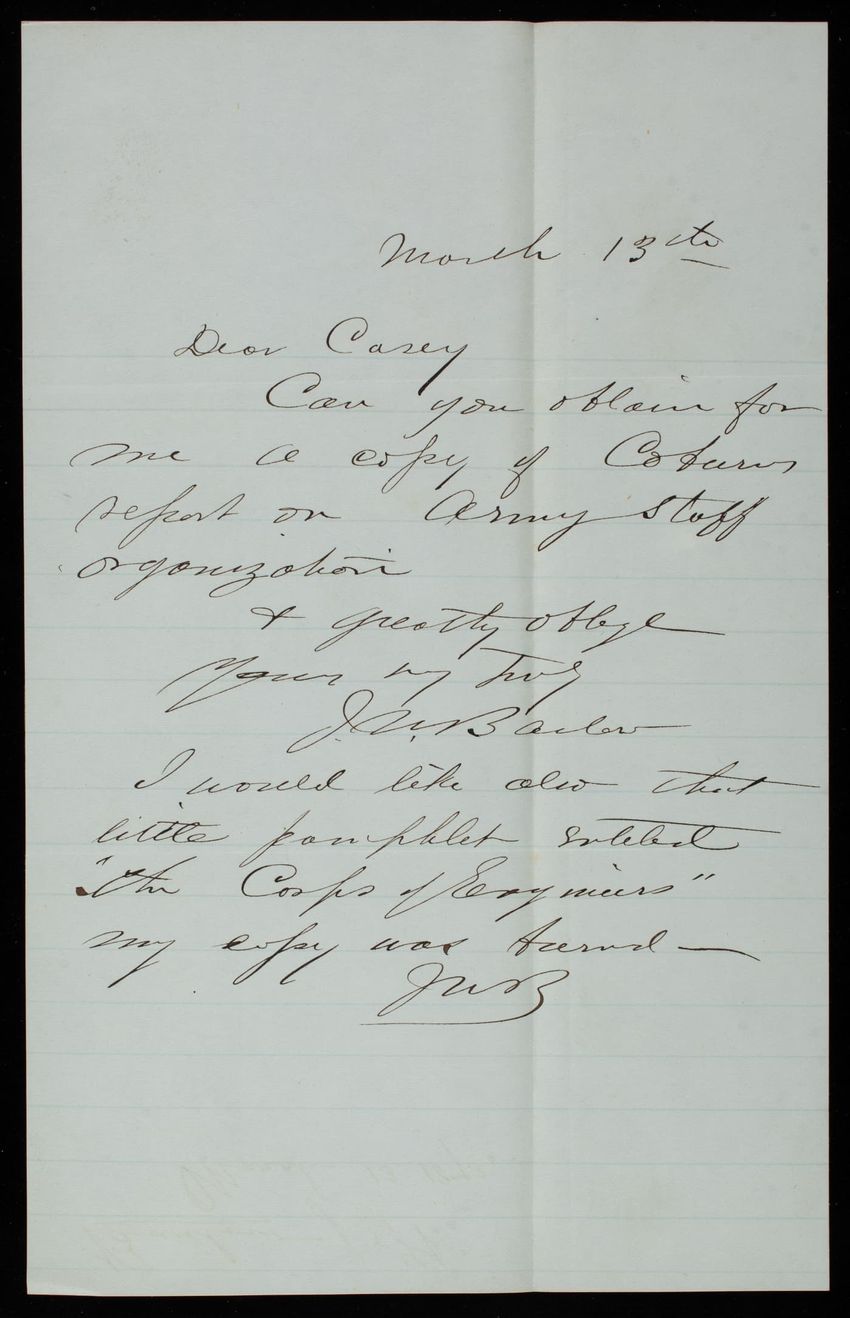 March 13th
Dear Casey
Can you obtain for
me a copy of Coburns
report on Army Staff
organization
& greatly oblige
Yours very truly
J. W. Barlow
I would like also that
little pamphlet entitled
"The Corps of Engineers"
my copy was burned —
JWB